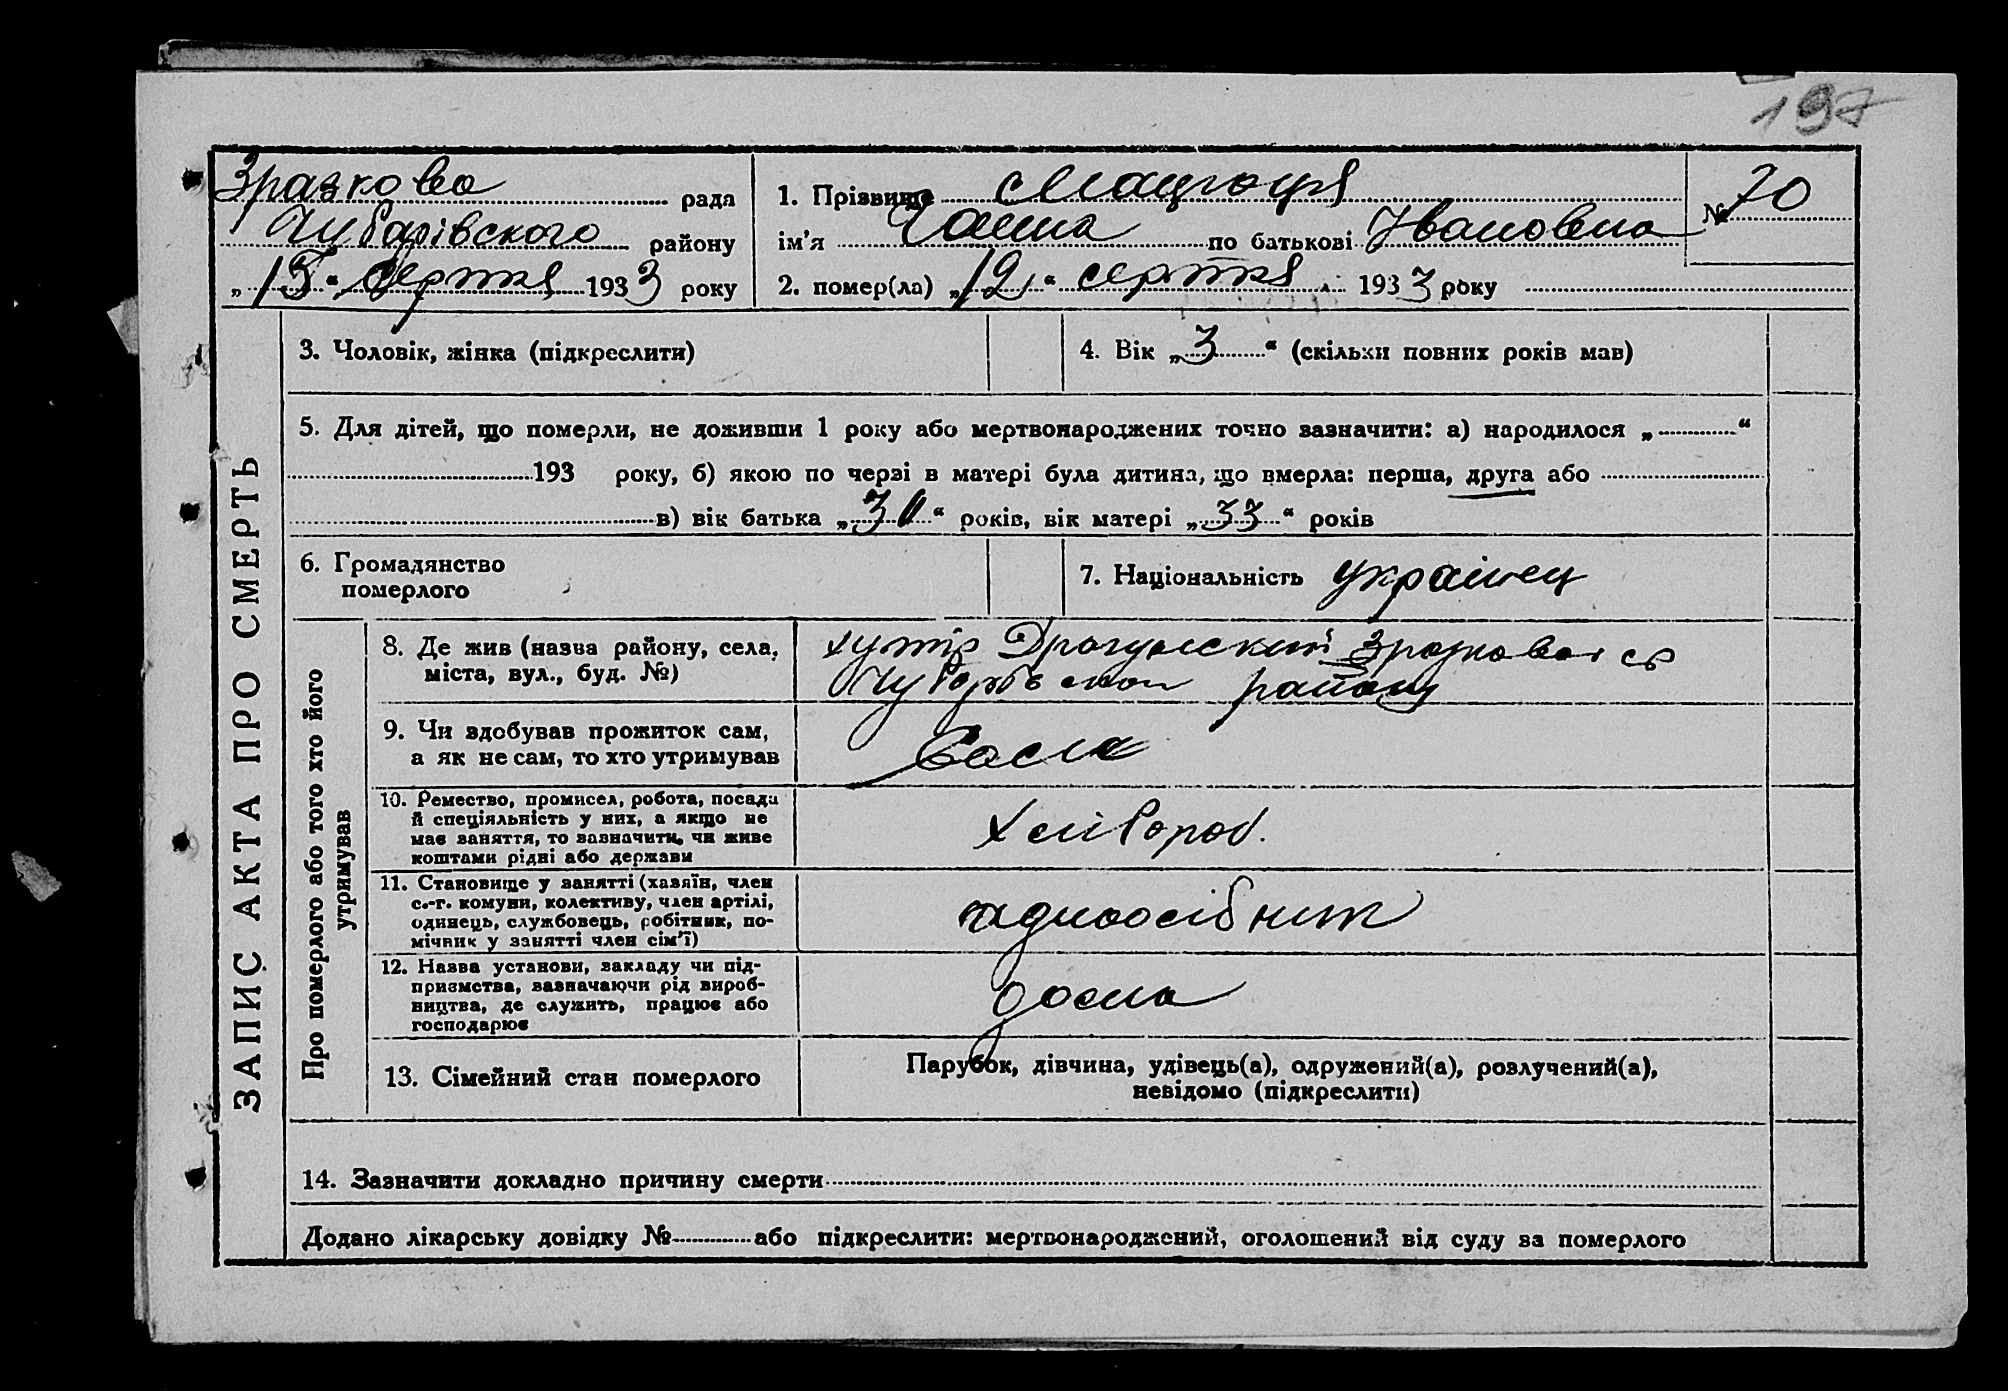 197
Зразкова рада
Чубарівського району
„15“ серпня 1933 року
1. Прізвище
ім'я Ганна по батькові Івановна
№ 70
2. помер(ла) „12“ серпня 1933 року
ЗАПИС АКТА ПРО СМЕРТЬ
3. Чоловік, жінка (підкреслити)
4. Вік „3“ (скільки повних років мав)
5. Для дітей, що померли, не доживши 1 року або мертвонароджених точно зазначити: а) народилося „ “
193 року, б) якою по черзі в матері була дитина, що вмерла: перша, друга або
в) вік батька „ “ років, вік матері „33“ років
6. Громадянство
померлого
7. Національність українец
Про померлого або того хто його
утримував
8. Де жив (назва району, села,
міста, вул., буд. №)
хутір Зразковая
района
9. Чи здобував прожиток сам,
а як не сам, то хто утримував
10. Ремество, промисел, робота, посада
й спеціяльність у них, а якщо не
має заняття, то зазначити, чи живе
коштами рідні або держави
хлібороб.
11. Становище у занятті (хазяїн, член
с.-г. комуни, колективу, член артілі,
одинець, службовець, робітник, по-
мічник у занятті член сім'ї)
одноосібник
12. Назва установи, закладу чи під-
приємства, зазначаючи рід вироб-
ництва, де служить, працює або
господарює
дома
13. Сімейний стан померлого
Парубок, дівчина, удівець(а), одружений(а), розлучений(а),
невідомо (підкреслити)
14. Зазначити докладно причину смерти
Додано лікарську довідку № або підкреслити: мертвонароджений, оголошений від суду за померлого